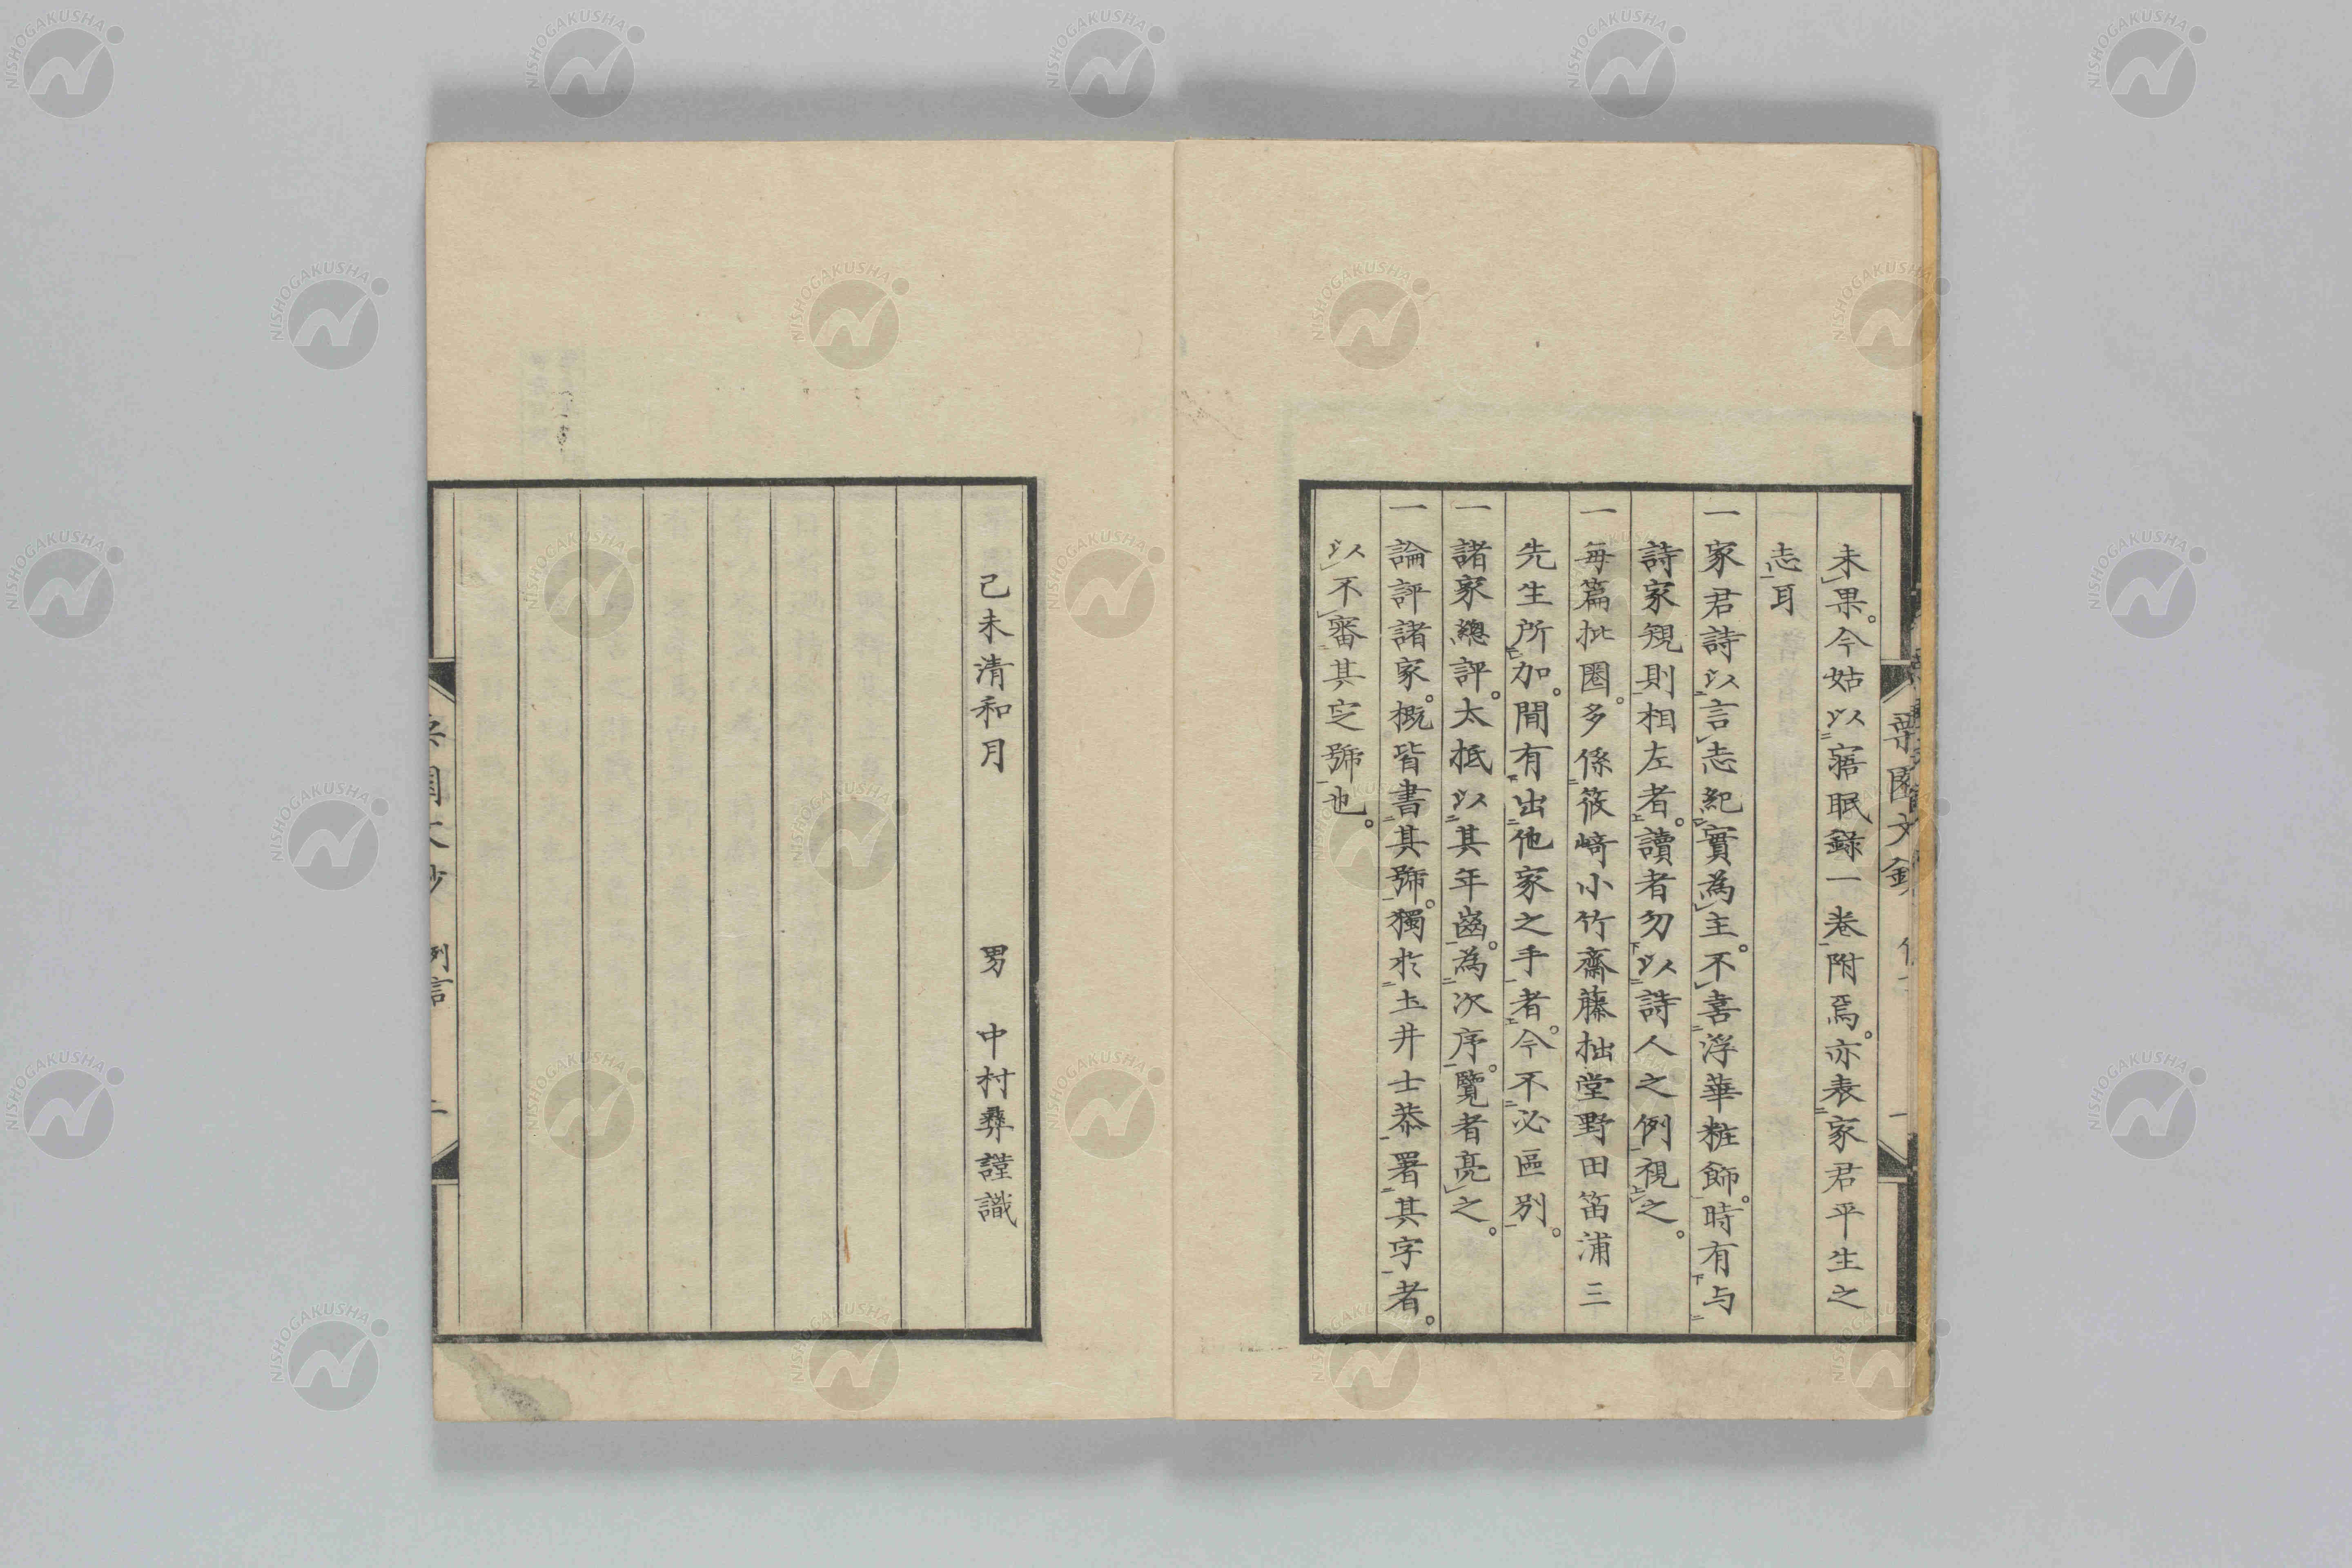 未果。今姑以寤眠錄一卷附焉。亦表家君平生之
志耳
一家君詩以言志紀實為主。不喜浮華粧飾。時有与
詩家規則相左者。讀者勿以詩人之例視之。
一每篇批圈。多係篠﨑小竹齋藤拙堂野田笛浦三
先生所加。間有出他家之手者。今不必區別。
一諸家總評。太抵以其年齒。為次序。覽者亮之。
一論評諸家。概皆書其號。獨於土井士恭署其字者。
以不審其定號也。
己未清和月
男 中村彝謹識
例言
NISHOGAKUSHA